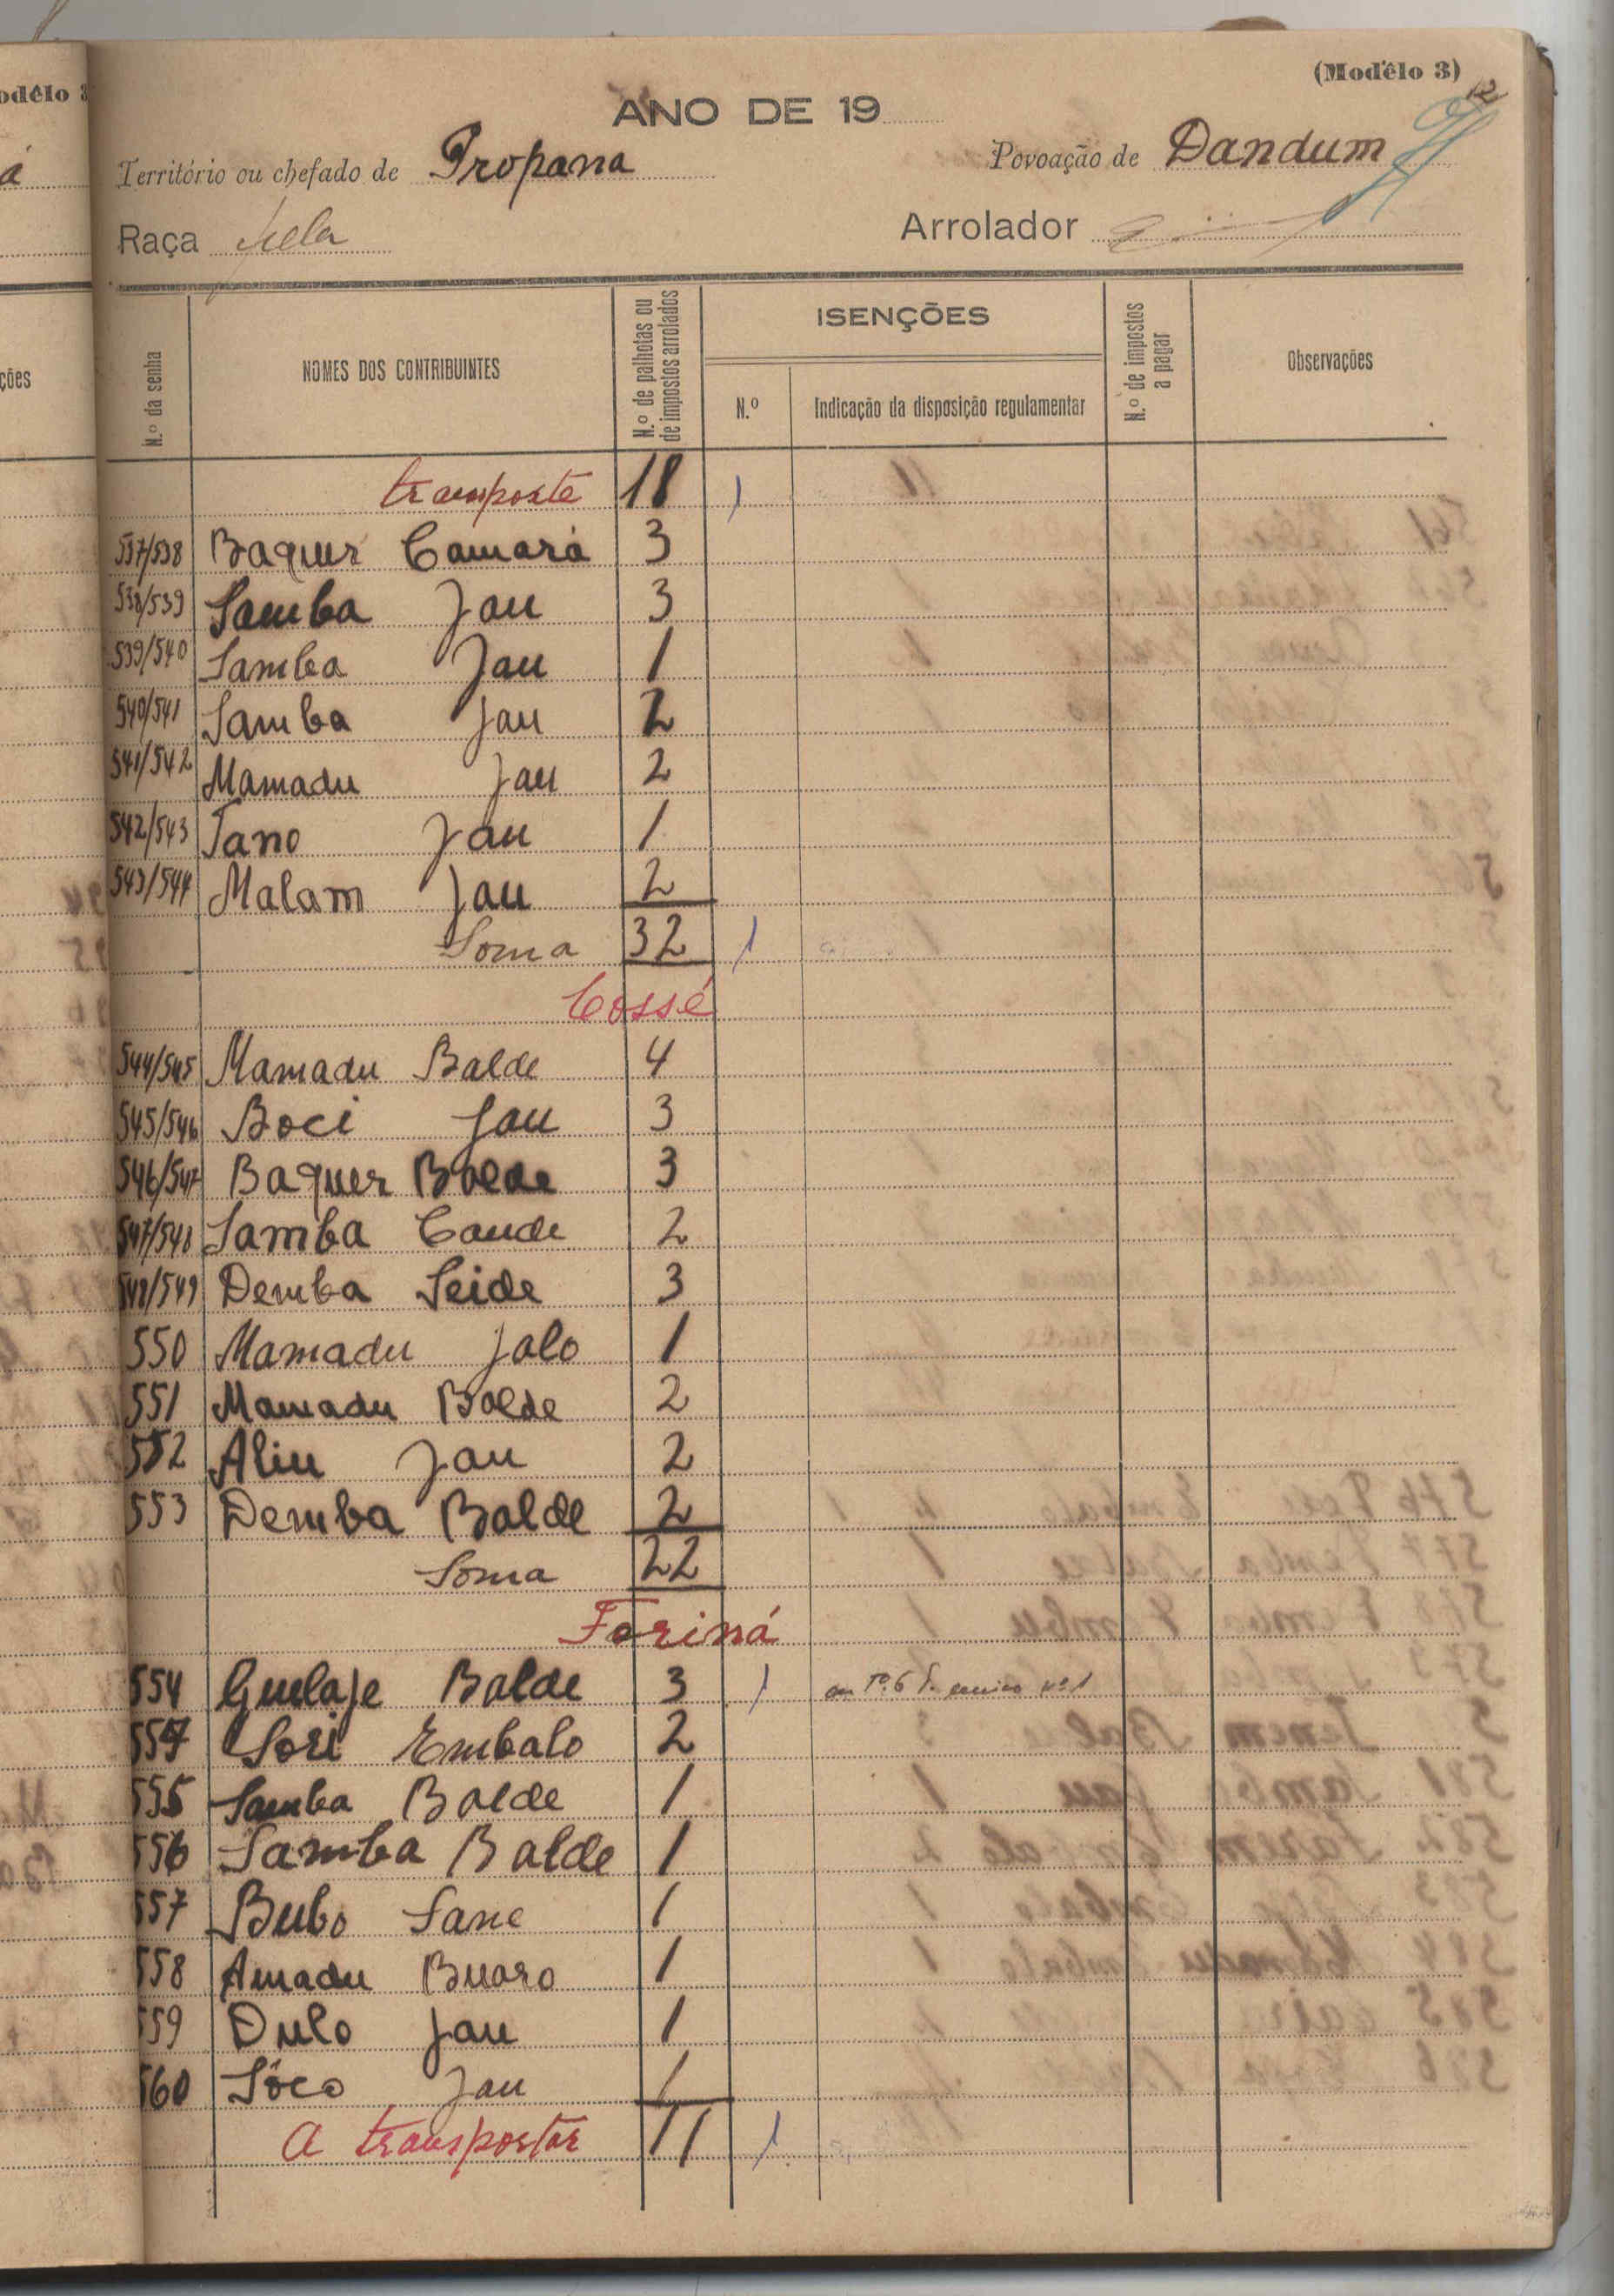 (Modêlo 3)
12
ANO DE 19
Território ou chefado de Propana Povoação de Dandum
Raça Fula Arrolador
N.º da senha NOMES DOS CONTRIBUINTES N.º de palhotas ou de impostos arrolados ISENÇÕES N.º Indicação da disposição regulamentar N.º de impostos a pagar Observações
transporte 18 1
537/538 Baquer Camará 3
538/539 Samba Jau 3
539/540 Samba Jau 1
540/541 Samba Jau 2
541/542 Mamadu Jau 2
542/543 Tano Jau 1
543/544 Malam Jau 2
Soma 32 1
Cossé
544/545 Mamadu Balde 4
545/546 Boci Jau 3
546/547 Baquer Balde 3
547/548 Samba Cande 2
548/549 Demba Seide 3
550 Mamadu Jalo 1
551 Mamadu Balde 2
552 Aliu Jau 2
553 Demba Balde 2
Soma 22
Fariná
554 Guelaje Balde 3 1
557 Sori Embalo 2
555 Samba Balde 1
556 Samba Balde 1
557 Bubo Sane 1
558 Amadu Buaro 1
559 Dulo Jau 1
560 Sóco Jau 1
A transportar 11 1